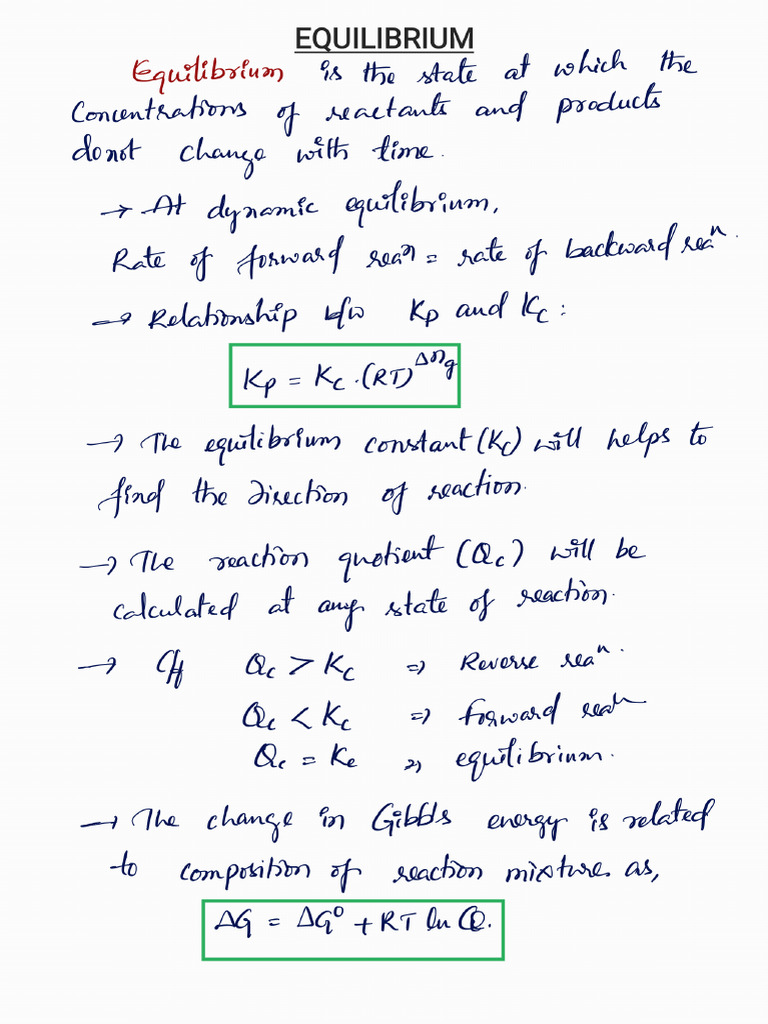 EQUILIBRIUM
Equilibrium is the state at which the
Concentrations of reactants and products
do not change with time.
→ At dynamic equilibrium,
Rate of forward reaⁿ = rate of backward reaⁿ.
→ Relationship b/w Kp and Kc :
Kp = Kc . (RT)^Δng
→ The equilibrium constant (Kc) will helps to
find the direction of reaction.
→ The reaction quotient (Qc) will be
calculated at any state of reaction.
→ If Qc > Kc ⇒ Reverse reaⁿ.
Qc < Kc ⇒ forward reaⁿ
Qc = Kc ⇒ equilibrium.
→ The change in Gibbs energy is related
to composition of reaction mixture as,
ΔG = ΔG° + RT ln Q.